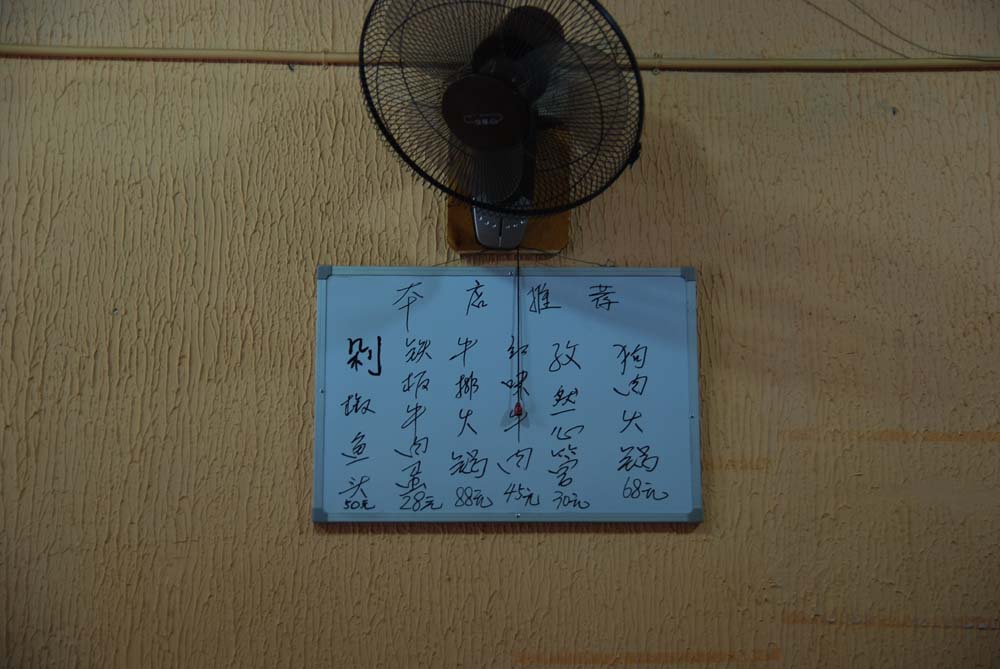 本店推荐
剁椒鱼头
50元
铁板牛肉蛋
28元
牛排火锅
88元
红味牛肉
45元
孜然心管
30元
狗肉火锅
68元